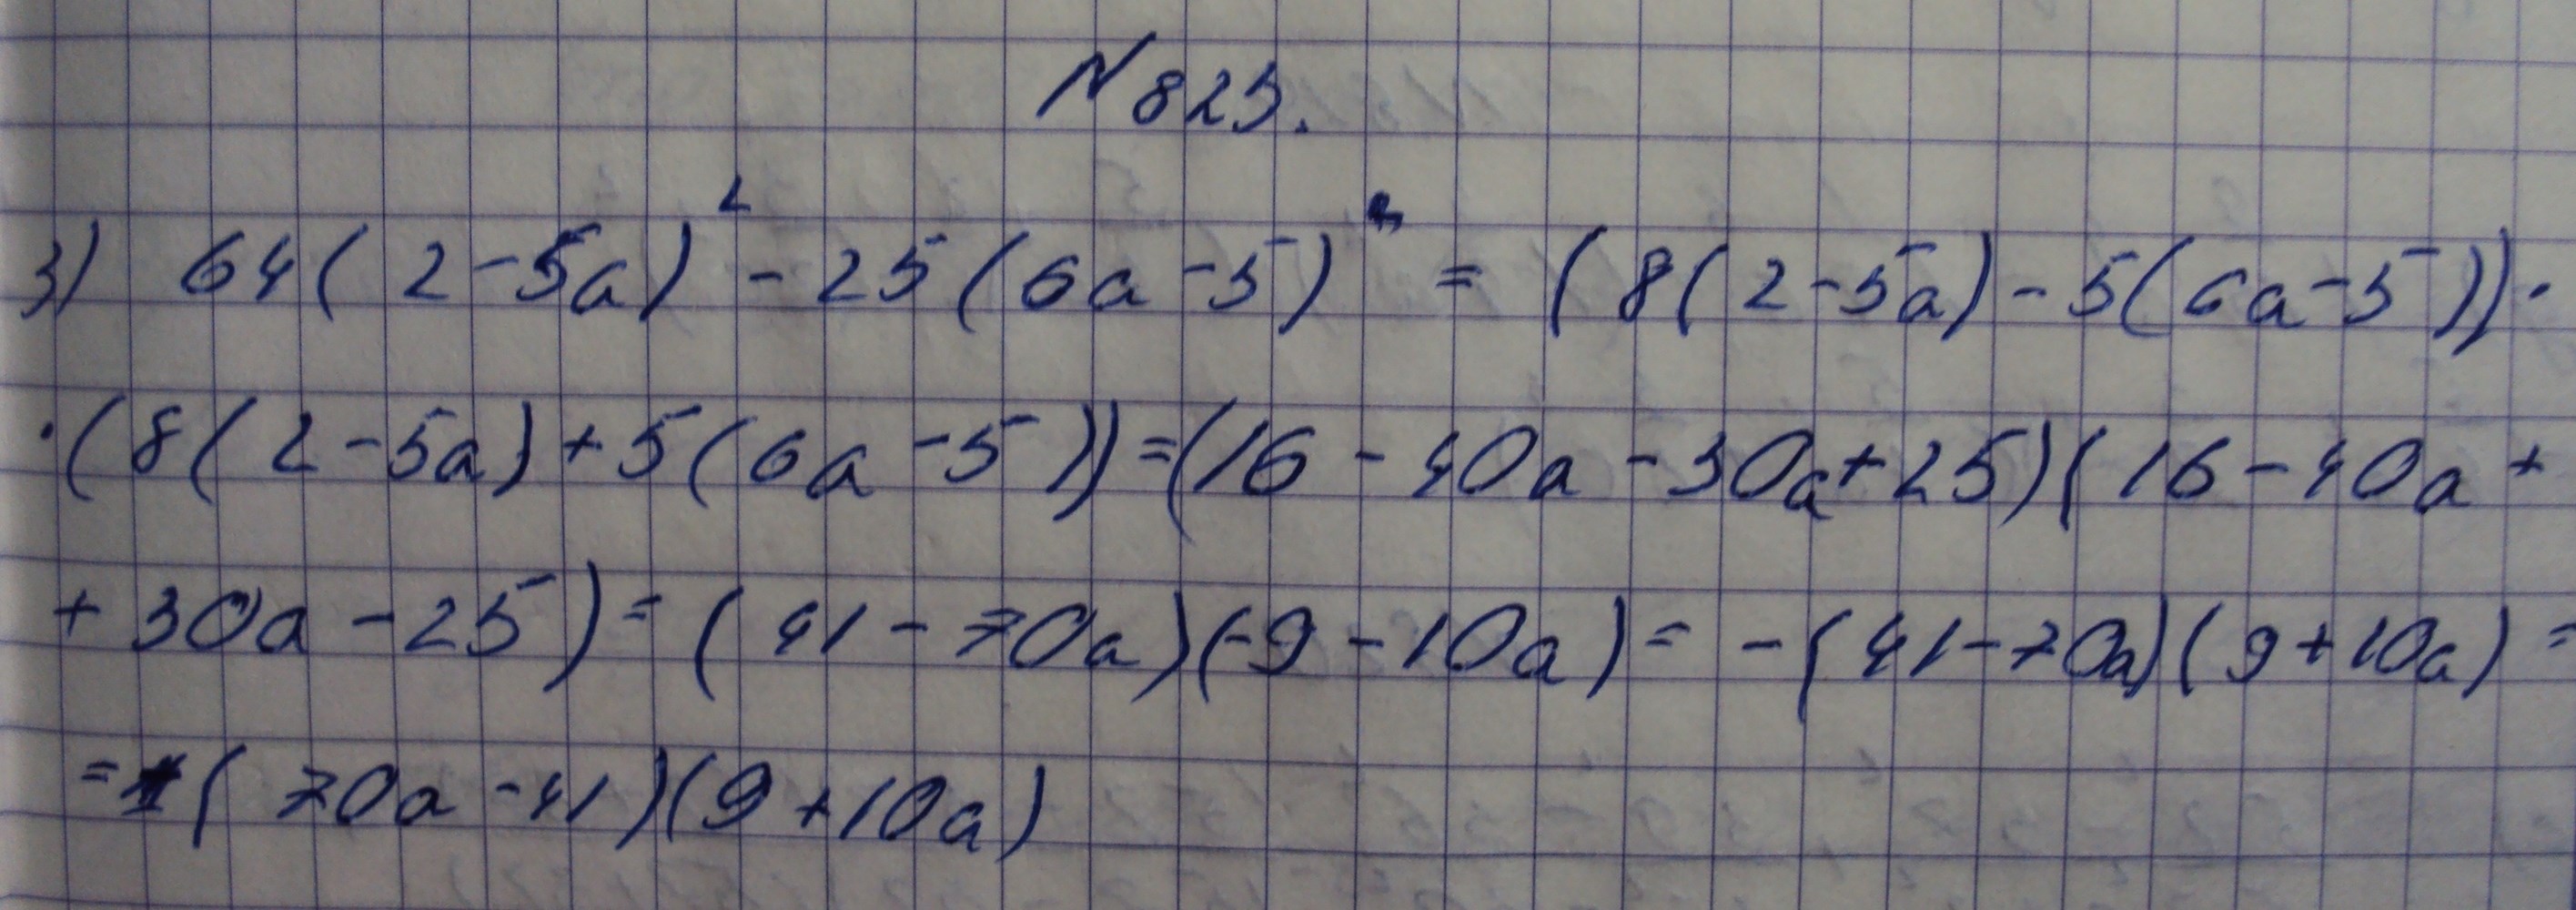 N 825.
3) 64(2-5a)² - 25(6a-5)² = (8(2-5a) - 5(6a-5))·
·(8(2-5a)+5(6a-5))=(16-40a-30a+25)(16-40a+
+30a-25)=(41-70a)(-9-10a)= -(41-70a)(9+10a)=
=(70a-41)(9+10a)